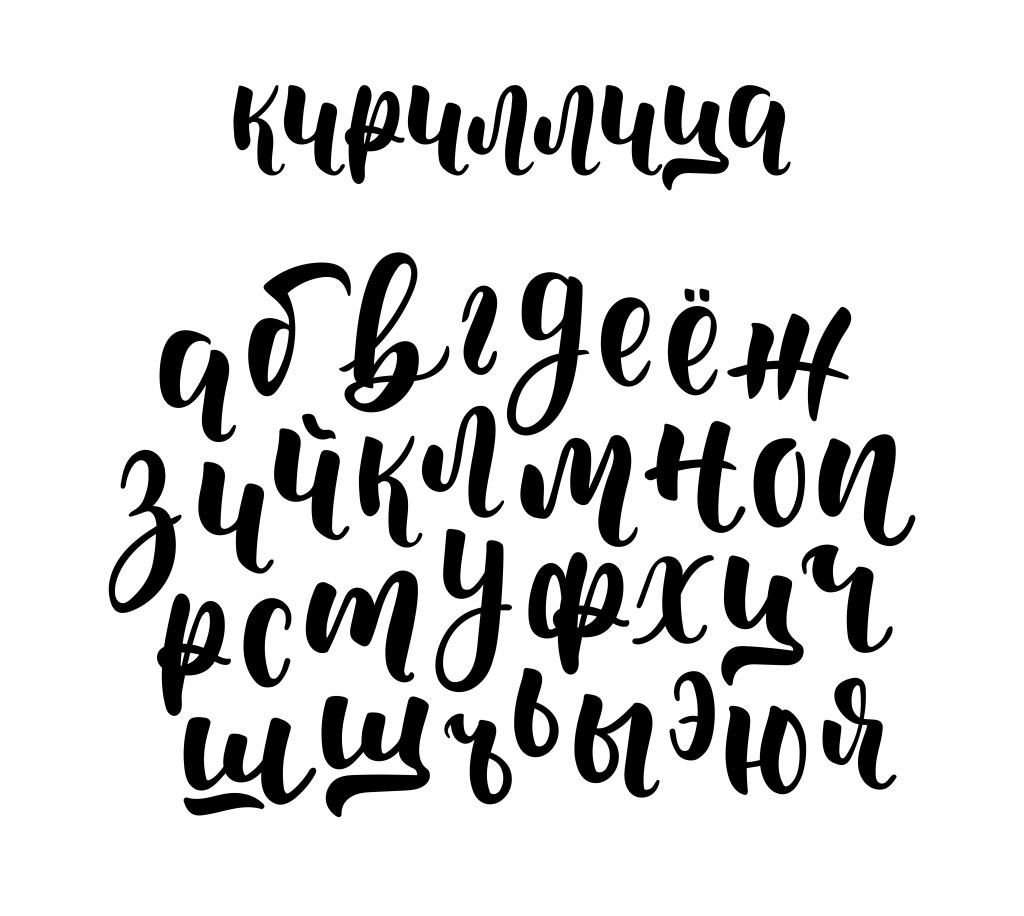 кириллица
абвгдеёж
зийклмноп
рстуфхцч
шщъьыэюя